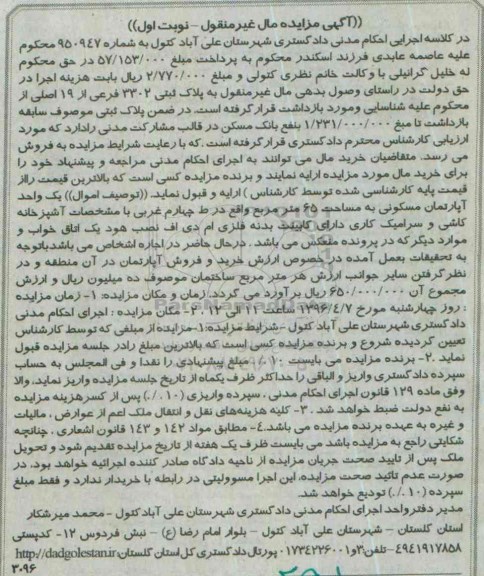 ((آگهی مزایده مال غیرمنقول - نوبت اول))
در کلاسه اجرایی احکام مدنی دادگستری شهرستان علی آباد کتول به شماره ۹۵۰۹۴۷ محکوم
علیه عاصمه عابدی فرزند اسکندر محکوم به پرداخت مبلغ ۵۷/۱۵۳/۰۰۰ در حق محکوم
له خلیل گرائیلی با وکالت خانم نظری کتولی و مبلغ ۲/۷۷۰/۰۰۰ ریال بابت هزینه اجرا در
حق دولت در راستای وصول بدهی مال غیرمنقول به پلاک ثبتی ۳۳۰۲ فرعی از ۱۹ اصلی از
محکوم علیه شناسایی ومورد بازداشت قرار گرفته است. در ضمن پلاک ثبتی موصوف سابقه
بازداشت تا مبغ ۱/۲۳۱/۰۰۰/۰۰۰ بنفع بانک مسکن در قالب مشارکت مدنی رادارد که مورد
ارزیابی کارشناس محترم دادگستری قرار گرفته است .که با رعایت شرایط مزایده به فروش
می رسد. متقاضیان خرید مال می توانند به اجرای احکام مدنی مراجعه و پیشنهاد خود را
برای خرید مال مورد مزایده ارایه نمایند و برنده مزایده کسی است که بالاترین قیمت رااز
قیمت پایه کارشناسی شده توسط کارشناس ) ارایه و قبول نماید. ((توصیف اموال)) یک واحد
آپارتمان مسکونی به مساحت ۶۵ متر مربع واقع در ط چهارم غربی با مشخصات آشپزخانه
کاشی و سرامیک کاری دارای کابینت بدنه فلزی ام دی اف نصب هود یک اتاق خواب و
موارد دیگر که در پرونده منعکس می باشد . درحال حاضر در اجاره اشخاص می باشدباتوجه
به تحقیقات بعمل آمده در خصوص ارزش خرید و فروش آپارتمان در آن منطقه و در
نظر گرفتن سایر جوانب ارزش هر متر مربع ساختمان موصوف ده میلیون ریال و ارزش
مجموع آن ۶۵۰/۰۰۰/۰۰۰ ریال بر آورد می گردد. زمان و مکان مزایده: ۱- زمان مزایده
: روز چهارشنبه مورخ ۱۳۹۶/۴/۷ ساعت ۱۱ الی ۱۲ ۲- مکان مزایده : اجرای احکام مدنی
دادگستری شهرستان علی آباد کتول - شرایط مزایده:۱-مزایده از مبلغی که توسط کارشناس
تعیین گردیده شروع و برنده مزایده کسی است که بالاترین مبلغ رادر جلسه مزایده قبول
نماید .۲- برنده مزایده می بایست ۱۰٪ مبلغ پیشنهادی را نقدا و فی المجلس به حساب
سپرده دادگستری واریز و الباقی را حداکثر ظرف یکماه از تاریخ جلسه مزایده واریز نماید، والا
وفق ماده ۱۲۹ قانون اجرای احکام مدنی ، سپرده واریزی (۱۰٪) پس از کسر هزینه مزایده
به نفع دولت ضبط خواهد شد . ۳- کلیه هزینه‌های نقل و انتقال ملک اعم از عوارض ، مالیات
و غیره به عهده برنده مزایده می باشد.۴- مطابق مواد ۱۴۲ و ۱۴۳ قانون اشعاری ، چنانچه
شکایتی راجع به مزایده باشد می بایست ظرف یک هفته از تاریخ مزایده تقدیم شود و تحویل
ملک پس از تایید صحت جریان مزایده از ناحیه دادگاه صادر کننده اجرائیه خواهد بود. در
صورت عدم تأئید صحت مزایده، این اجرا مسوولیتی در رابطه با خریدار ندارد و فقط مبلغ
سپرده (۱۰٪) تودیع خواهد شد.
مدیر دفترواحد اجرای احکام مدنی دادگستری شهرستان علی آباد کتول - محمد میرشکار
استان گلستان - شهرستان علی آباد کتول - بلوار امام رضا (ع) - نبش فردوس ۱۲- کدپستی
۴۹۴۱۹۱۷۸۵۸ -تلفن۳و۰۱۷۳۴۲۲۶۰۰۱ پورتال دادگستری کل استان گلستان http://dadgolestan.ir
۳۰۹۶